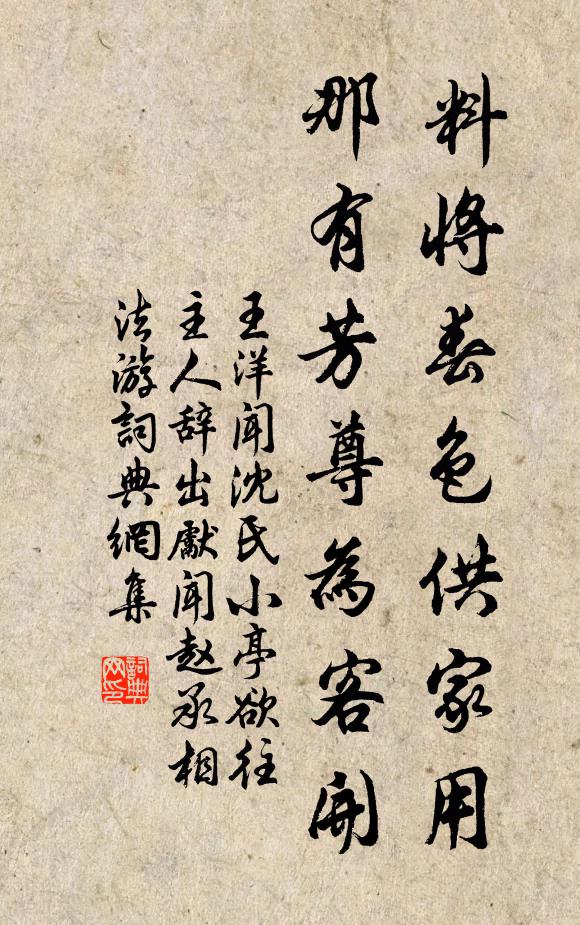 料將春色供家用
那有芳尊為客開
王洋闻沈氏小亭欲往
主人辞出獻闻赵承相
法游詞典網集
詞典网印